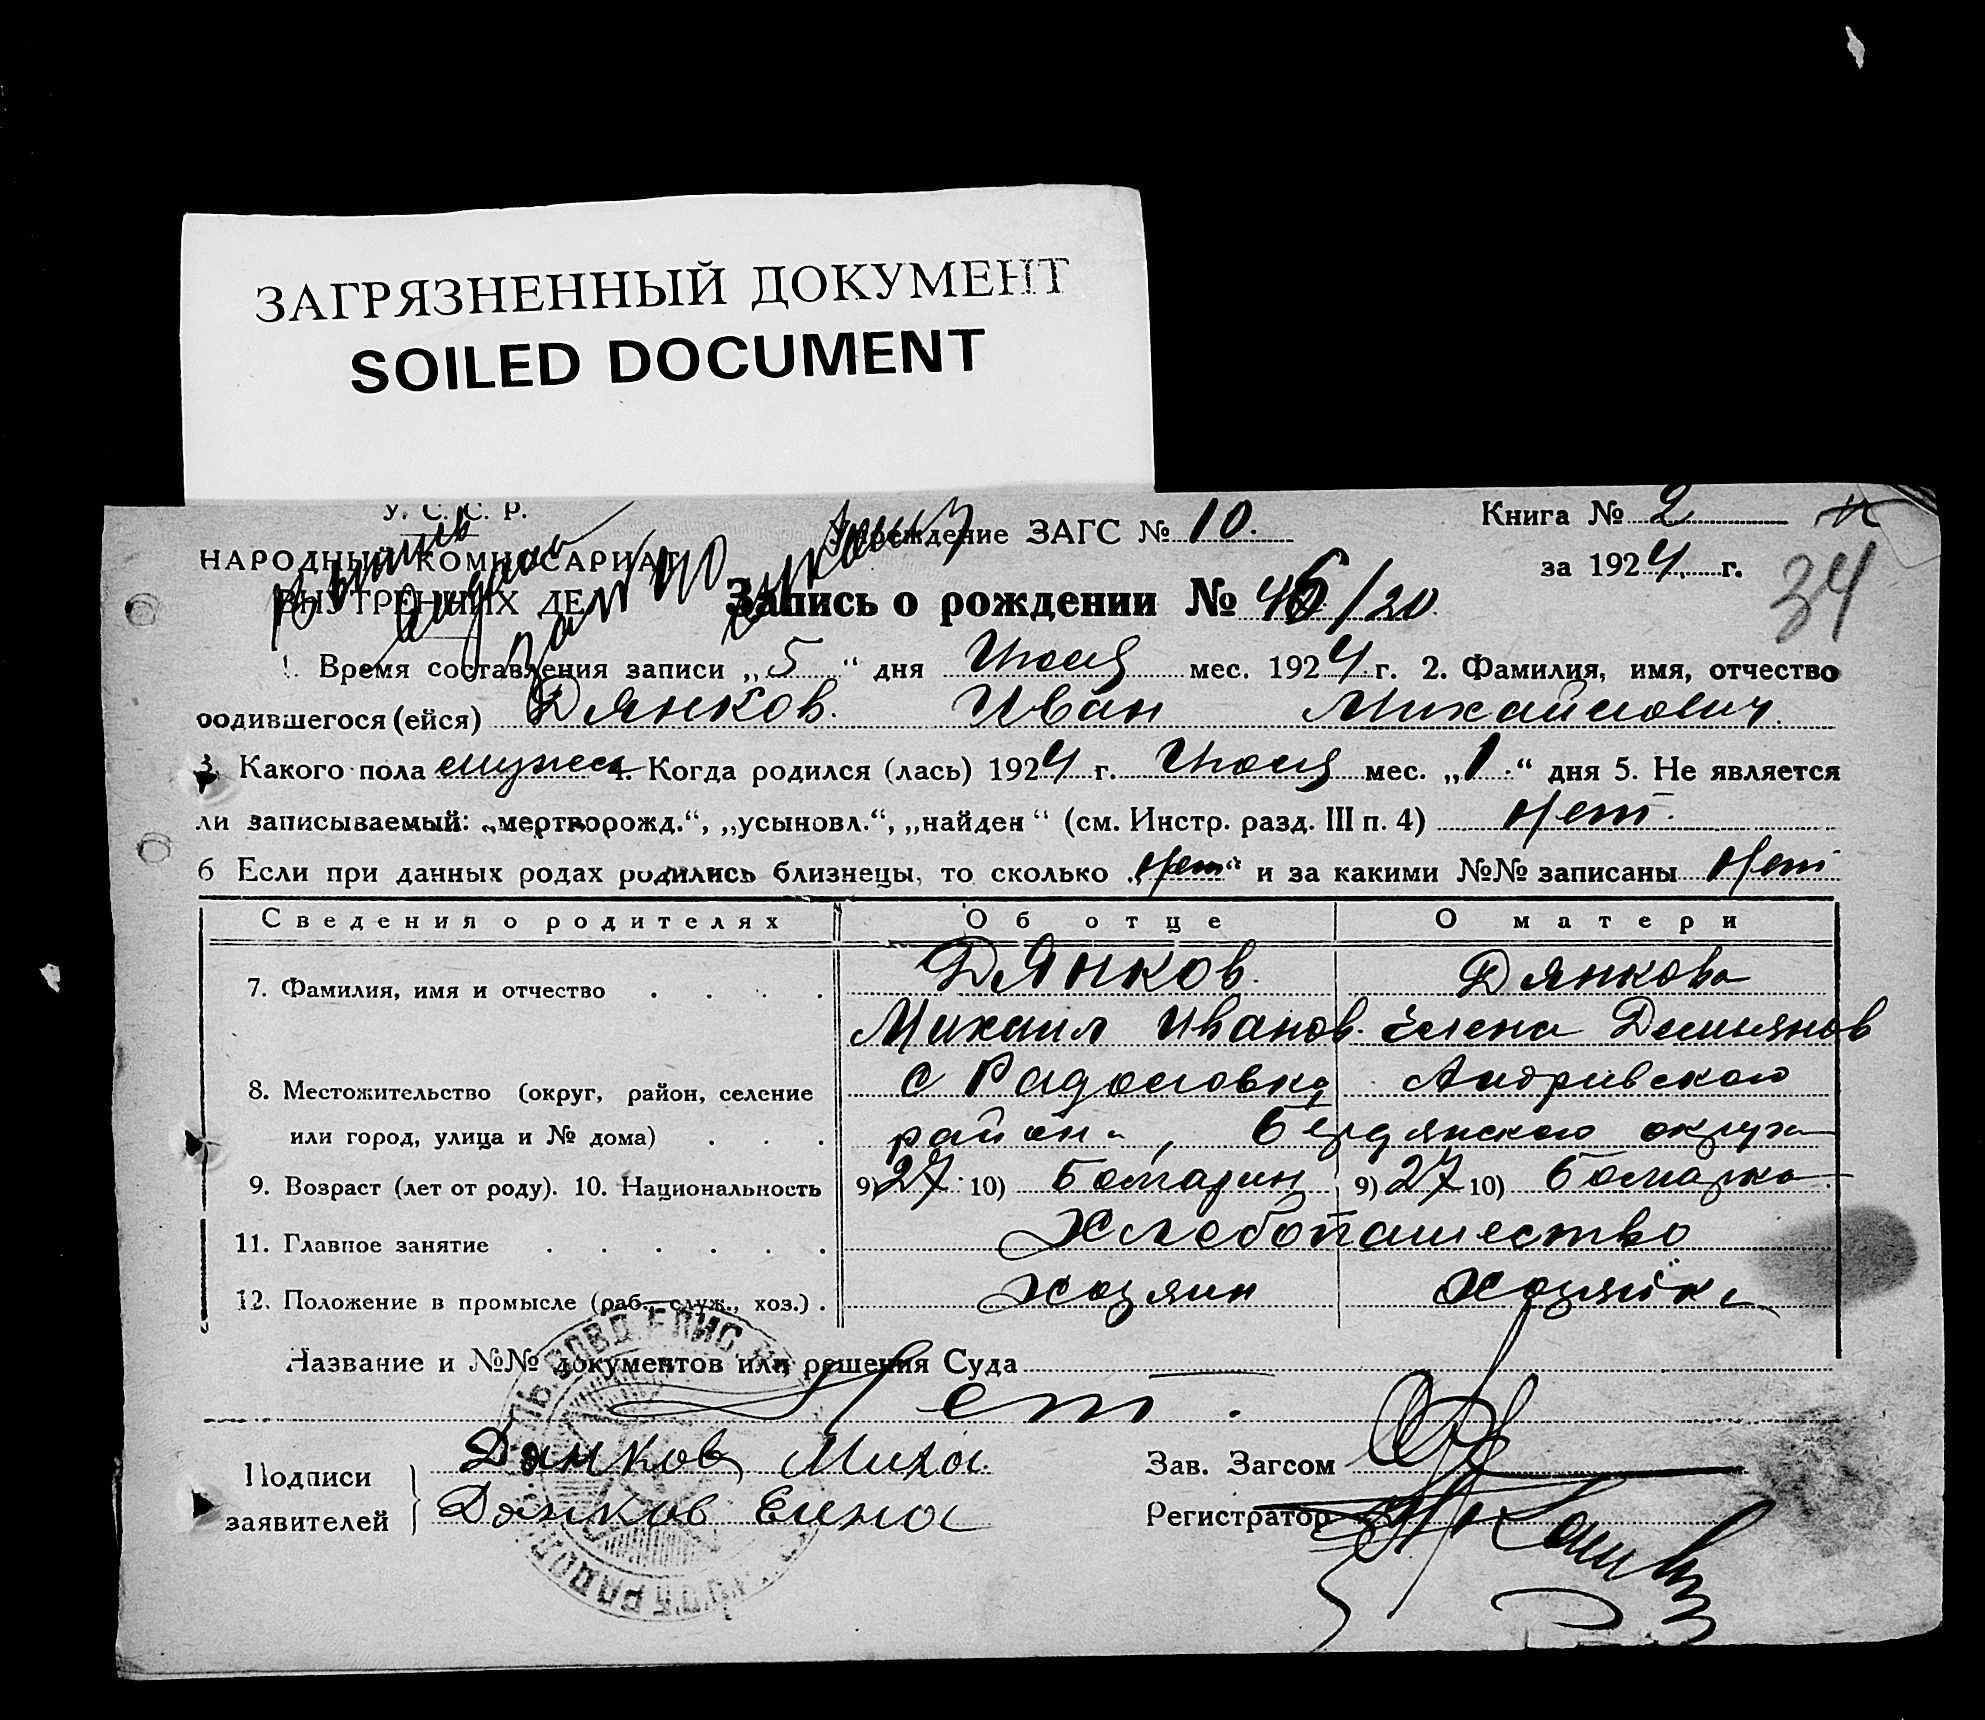 ЗАГРЯЗНЕННЫЙ ДОКУМЕНТ
SOILED DOCUMENT
У. С. С. Р.
НАРОДНЫЙ КОМИССАРИАТ
ВНУТРЕННИХ ДЕЛ
Учреждение ЗАГС № 10.
Книга № 2
за 1924 г.
34
Запись о рождении № 46/20
1. Время составления записи „5“ дня Июля мес. 1924 г. 2. Фамилия, имя, отчество
родившегося (ейся) Дянков. Иван Михайлович.
3. Какого пола мужск 4. Когда родился (лась) 1924 г. Июля мес. „1.“ дня 5. Не является
ли записываемый: „мертворожд.“, „усыновл.“, „найден“ (см. Инстр. разд. III п. 4) Нет.
6 Если при данных родах родились близнецы, то сколько „Нет“ и за какими №№ записаны Нет
Сведения о родителях Об отце О матери
7. Фамилия, имя и отчество Дянков. Дянкова
Михаил Иванов. Елена Демьянов
8. Местожительство (округ, район, селение с Радоловка Андривского
или город, улица и № дома) район, Бердянского округа
9. Возраст (лет от роду). 10. Национальность 9) 27. 10) Болгарин 9) 27 10) Болгарка.
11. Главное занятие Хлебопашество
12. Положение в промысле (раб., служ., хоз.). Хозяин Хозяйка
Название и №№ документов или решения Суда —
Нет.
Подписи Дянков Миха. Зав. Загсом
заявителей Дянков Елена Регистратор